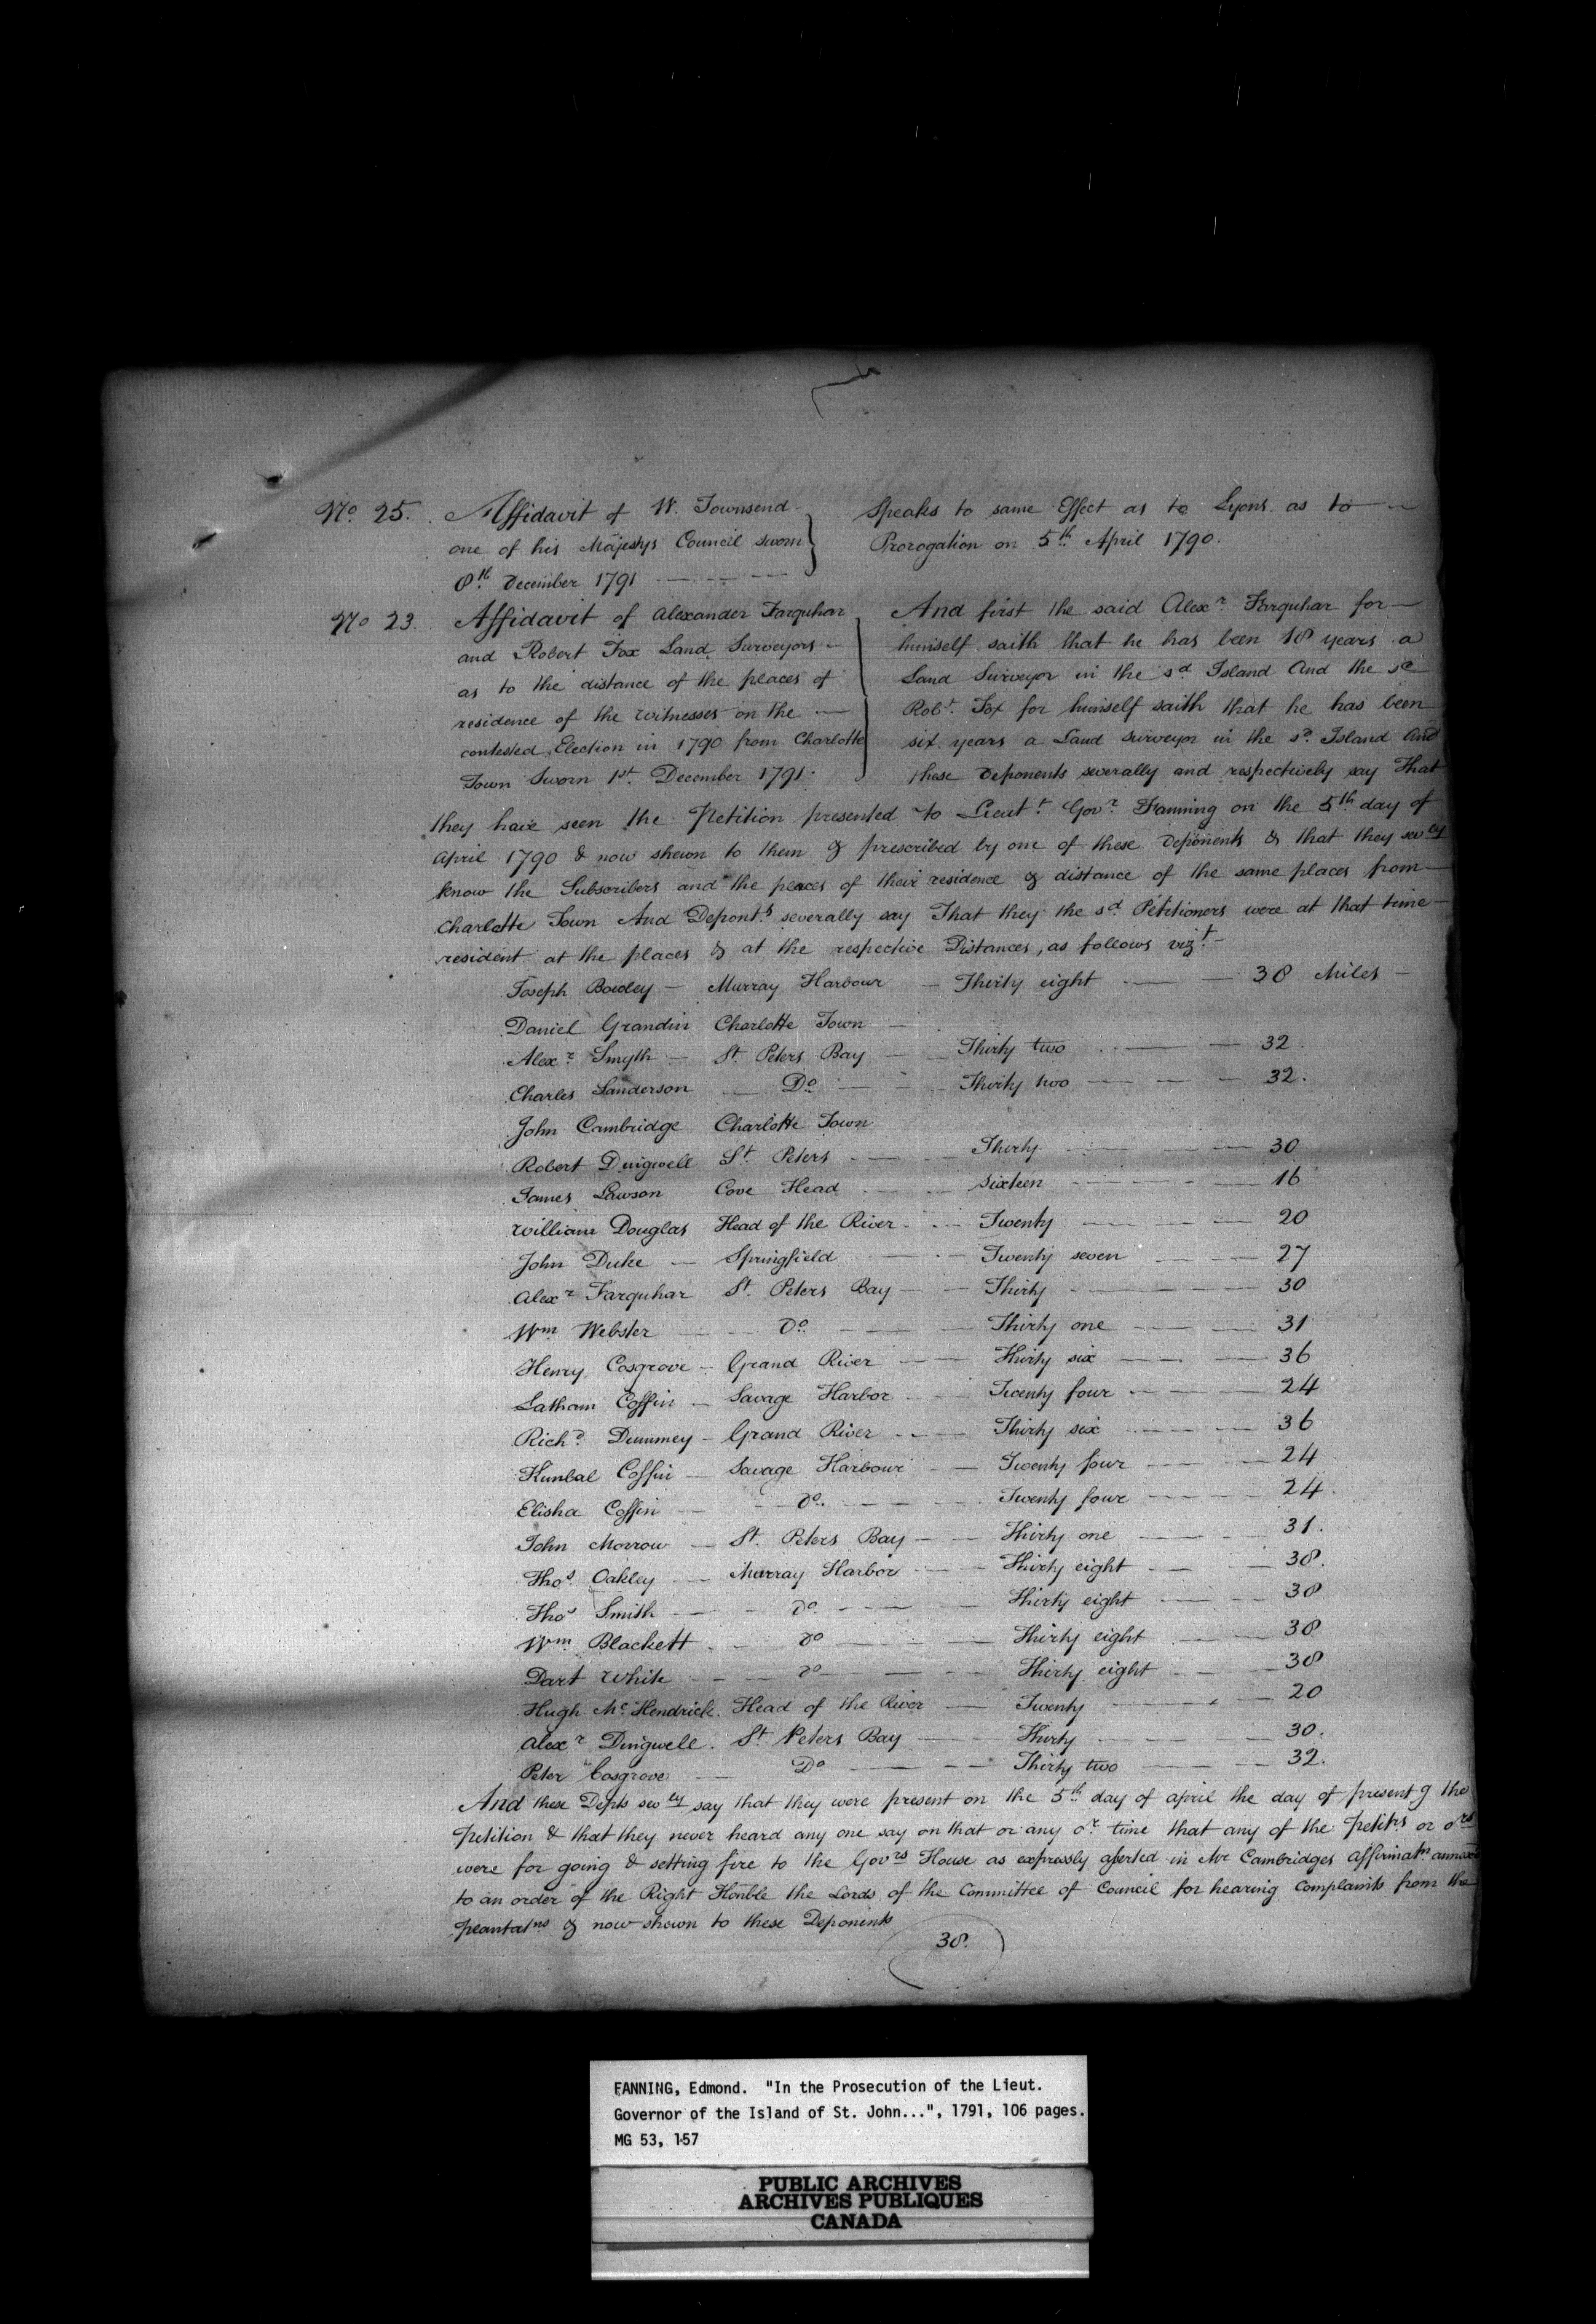 No. 25. Affidavit of W. Townsend. Speaks to same Effect as to Lyons as to
one of his Majestys Council sworn Prorogation on 5th April 1790.
8th December 1791
No 23. Affidavit of Alexander Farquhar And first the said Alexr Farquhar for
and Robert Fox Land Surveyors himself saith that he has been 18 years a
as to the distance of the places of Land Surveyor in the sd Island And the sd
residence of the Witnesses on the Robt. Fox for himself saith that he has been
contested Election in 1790 from Charlotte six years a Land Surveyor in the sd. Island And
Town Sworn 1st December 1791. these Deponents severally and respectively say That
they have seen the Petition presented to Lieutt. Govr Fanning on the 5th day of
April 1790 & now shewn to them & prescribed by one of these Deponents & that they sevlly
know the Subscribers and the places of their residence & distance of the same places from
Charlotte Town And Deponts severally say That they the sd Petitioners were at that time
resident at the places & at the respective Distances, as follows vizt
Joseph Bowley — Murray Harbour — Thirty eight — 38 Miles
Daniel Grandin Charlotte Town —
Alexr Smyth — St. Peters Bay — Thirty two — 32.
Charles Sanderson — Do — Thirty two — 32.
John Cambridge Charlotte Town
Robert Dingwell St. Peters — Thirty — 30
James Lawson Cove Head — Sixteen — 16
William Douglas Head of the River — Twenty — 20
John Duke — Springfield — Twenty seven — 27
Alexr Farquhar St. Peters Bay — Thirty — 30
Wm Webster — Do — Thirty one — 31
Henry Cosgrove — Grand River — Thirty six — 36
Latham Coffin — Savage Harbor — Twenty four — 24
Richd Dummey — Grand River — Thirty six — 36
Kimbal Coffin — Savage Harbour — Twenty four — 24
Elisha Coffin — do. — Twenty four — 24.
John Morrow — St. Peters Bay — Thirty one — 31.
Thos. Oakley — Murray Harbor — Thirty eight — 38.
Thos Smith — do — Thirty eight — 38
Wm Blackett — do — Thirty eight — 38
Dart White — do — Thirty eight — 38
Hugh McKendrick. Head of the River — Twenty — 20
Alexr Dingwell. St. Peters Bay — Thirty — 30.
Peter Cosgrove — Do — Thirty two — 32.
And these Depts sevlly say that they were present on the 5th day of April the day of presentg the
Petition & that they never heard any one say on that or any or time that any of the Petitrs or ors
were for going & setting fire to the Govrs House as expressly aserted in Mr Cambridges affirmatn annexed
to an order of the Right Honble the Lords of the Committee of Council for hearing Complaints from the
plantatns & now shown to these Deponents
38.
FANNING, Edmond. "In the Prosecution of the Lieut.
Governor of the Island of St. John...", 1791, 106 pages.
MG 53, 157
PUBLIC ARCHIVES
ARCHIVES PUBLIQUES
CANADA